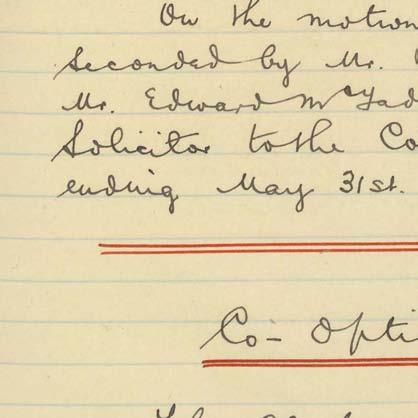 On the motion
seconded by Mr.
Mr. Edward McFad
Solicitor to the Co
ending May 31st.
Co-Opti